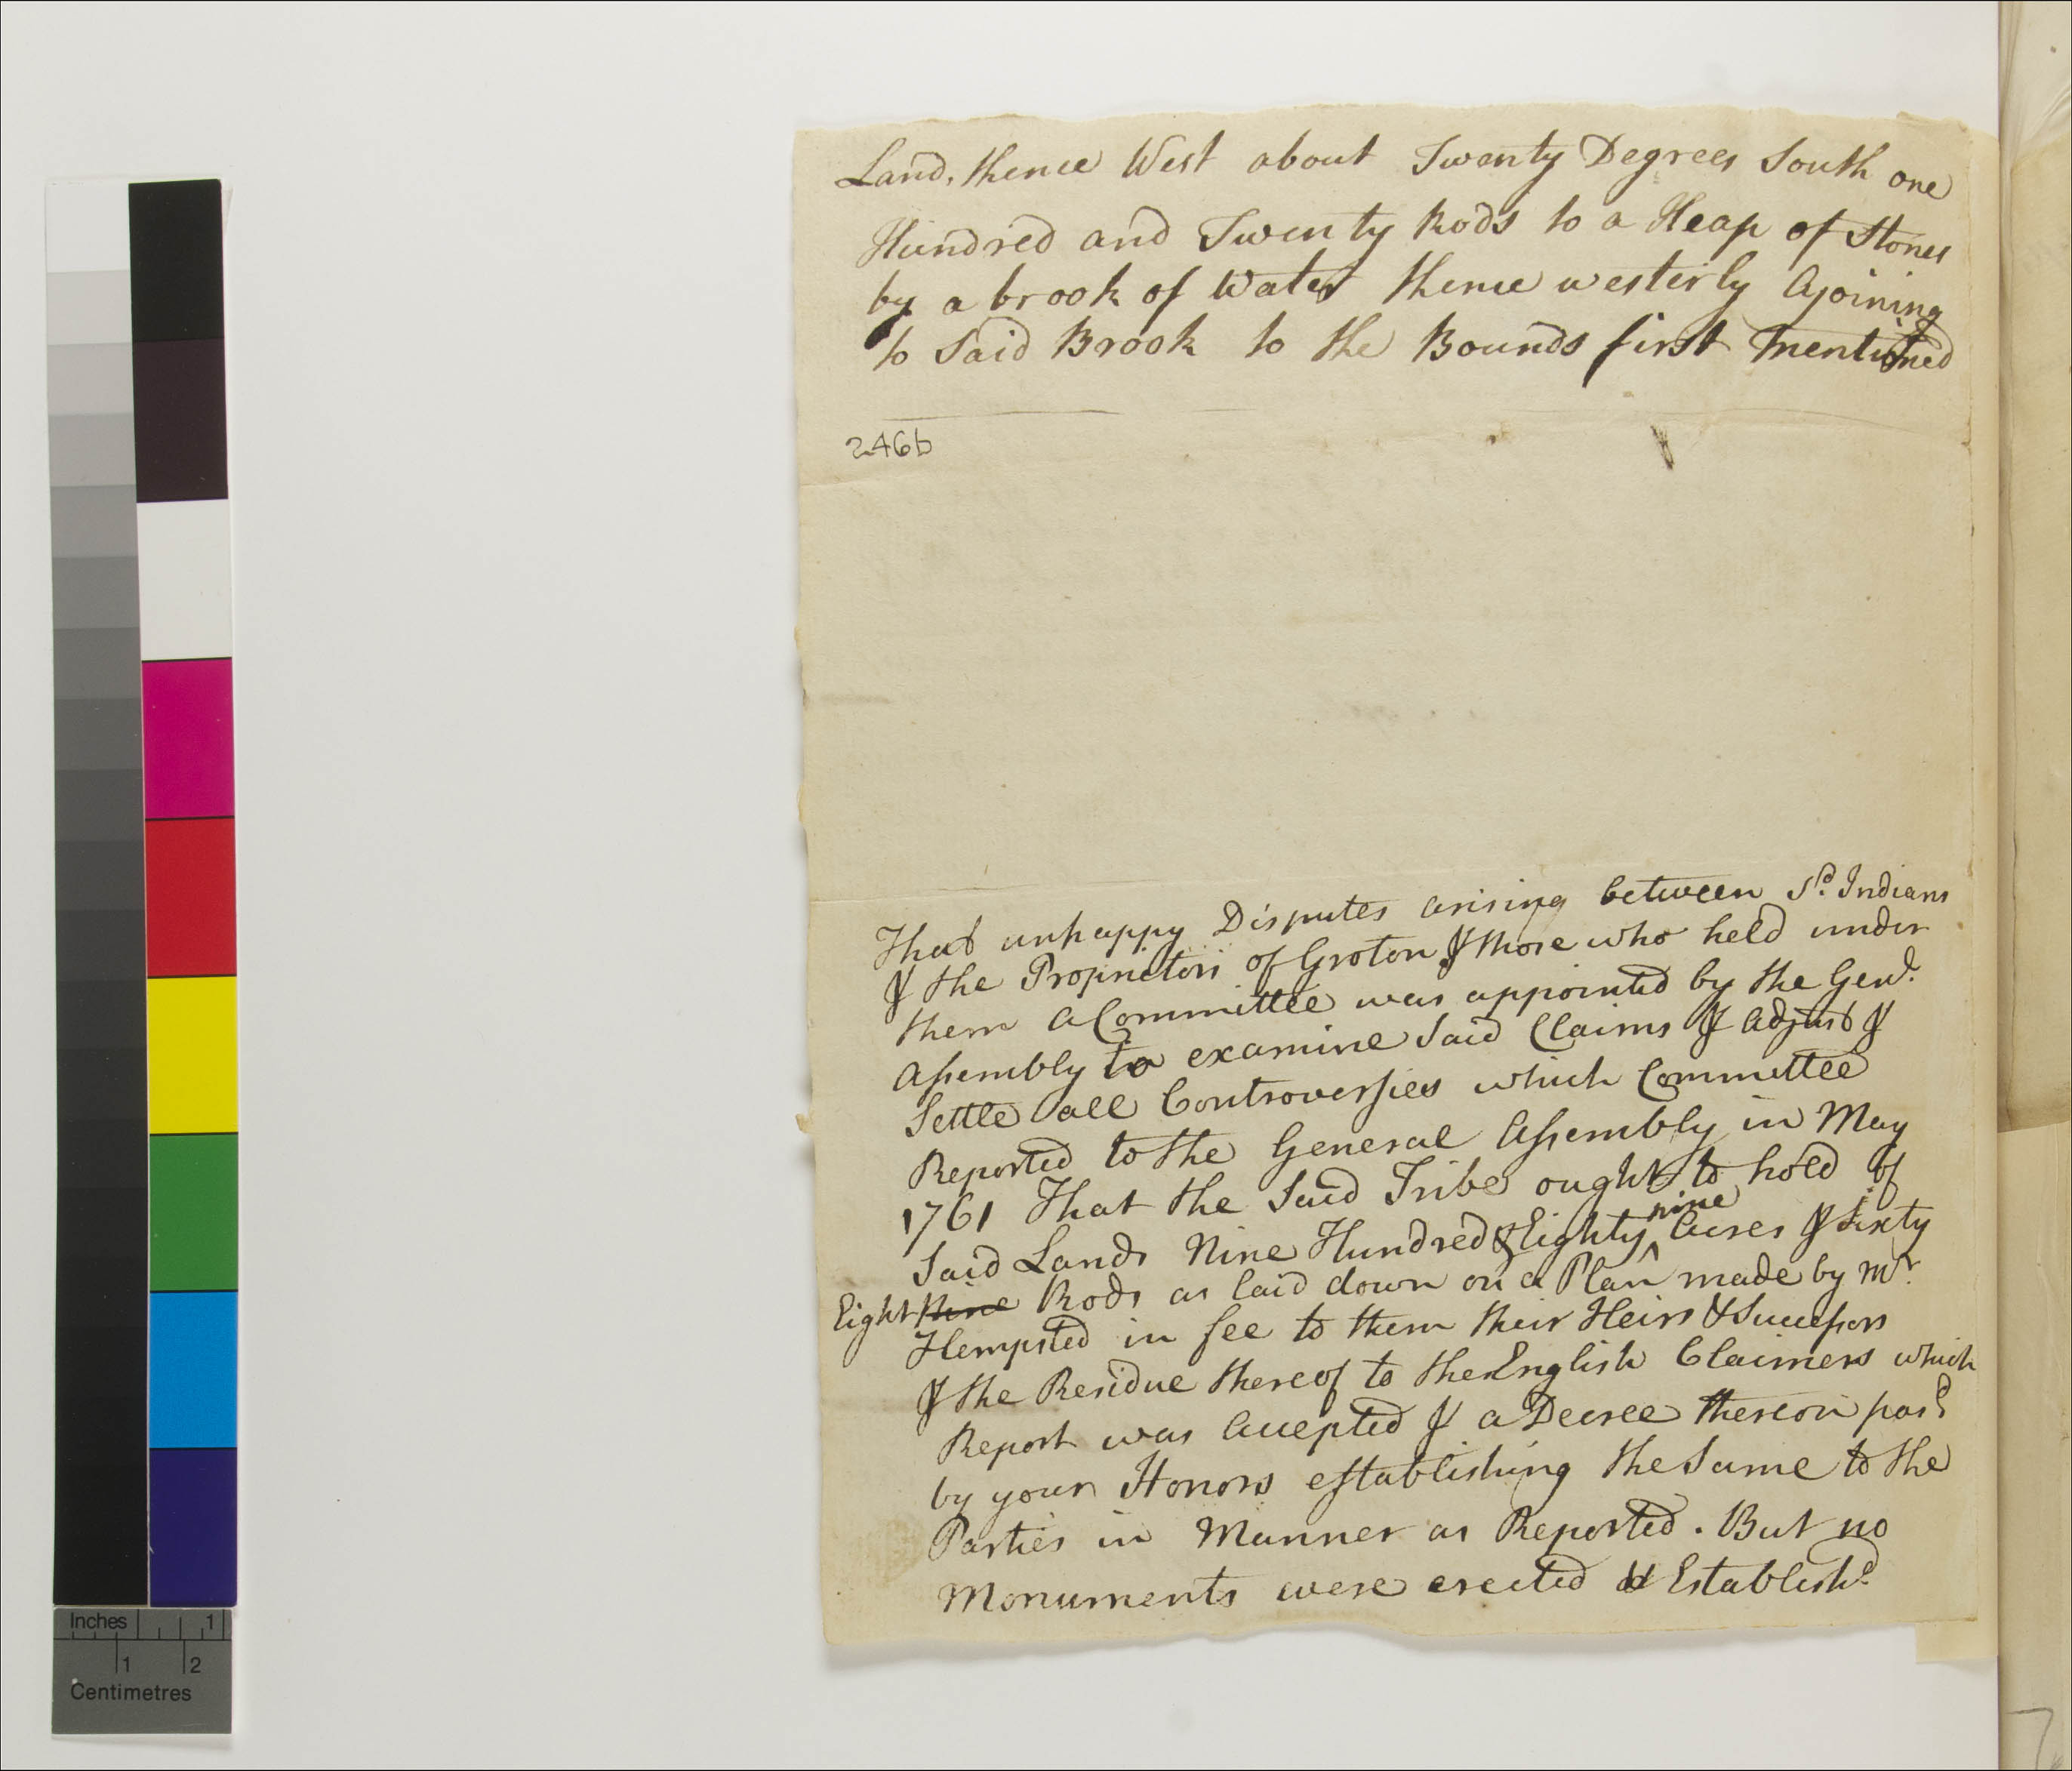 Land, thence West about Twenty Degrees South one
Hundred and Twenty Rods to a Heap of Stones
by a brook of Water thence westerly Ajoining
to Said Brook to the Bounds first mentioned
246b
That unhappy Disputes arising between Sd. Indians
& the Proprietors of Groton & those who held under
them a Committee was appointed by the Genl.
Assembly to examine Said Claims & Adjust &
Settle all Controversies which Committee
Reported to the General Assembly in May
1761 That the Said Tribe ought to hold of
nine
Said Lands Nine Hundred & Eighty ^ Acres & Sixty
Eight Nine Rods as laid down on a Plan made by Mr.
Hempsted in fee to them their Heirs & Successors
& the Residue thereof to the English Claimers which
Report was Accepted & a Decree thereon pasd
by your Honors establishing the Same to the
Parties in Manner as Reported. But no
Monuments were erected & Establishd.
Inches 1
1 2
Centimetres